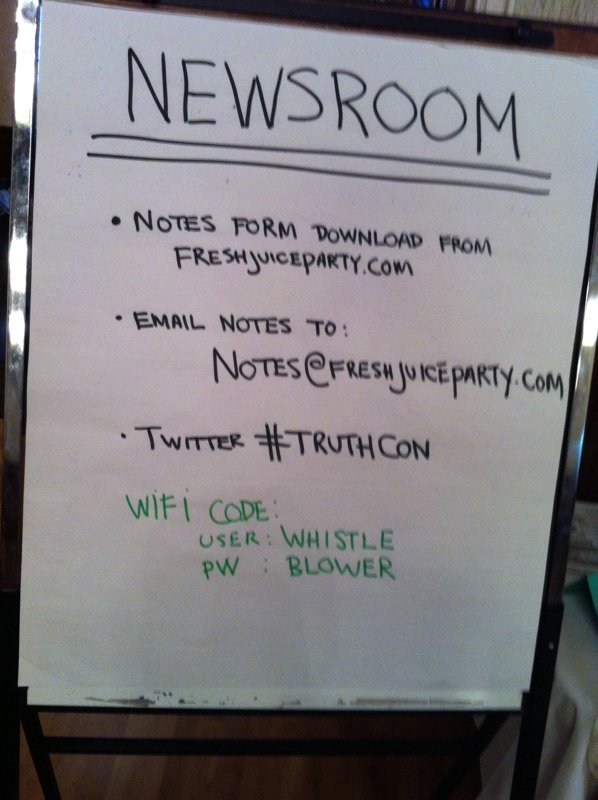 NEWSROOM
• NOTES FORM DOWNLOAD FROM
FRESHJUICEPARTY.COM
• EMAIL NOTES TO:
NOTES@FRESHJUICEPARTY.COM
• TWITTER #TRUTHCON
WIFI CODE:
USER: WHISTLE
PW : BLOWER